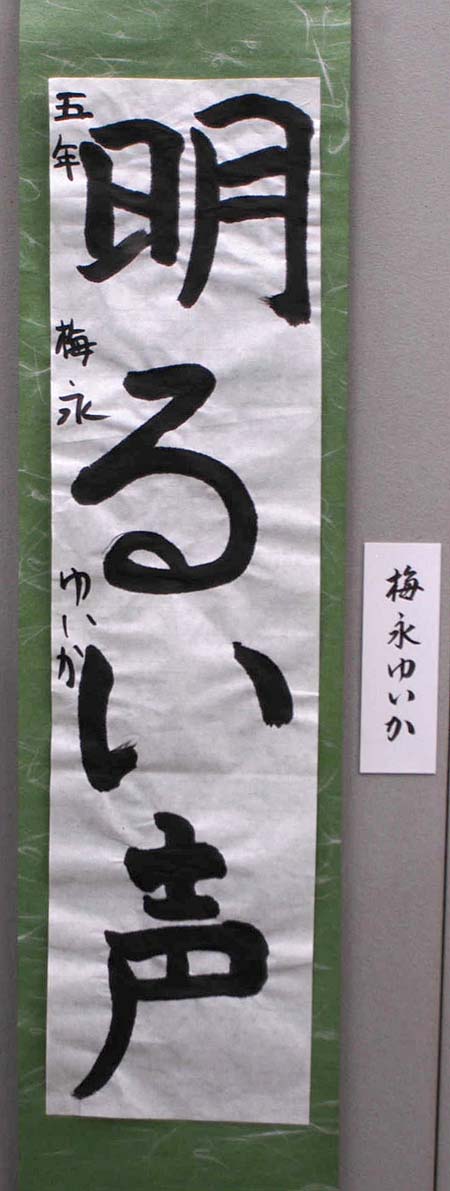 明るい声
五年 梅永 ゆいか
梅永ゆいか